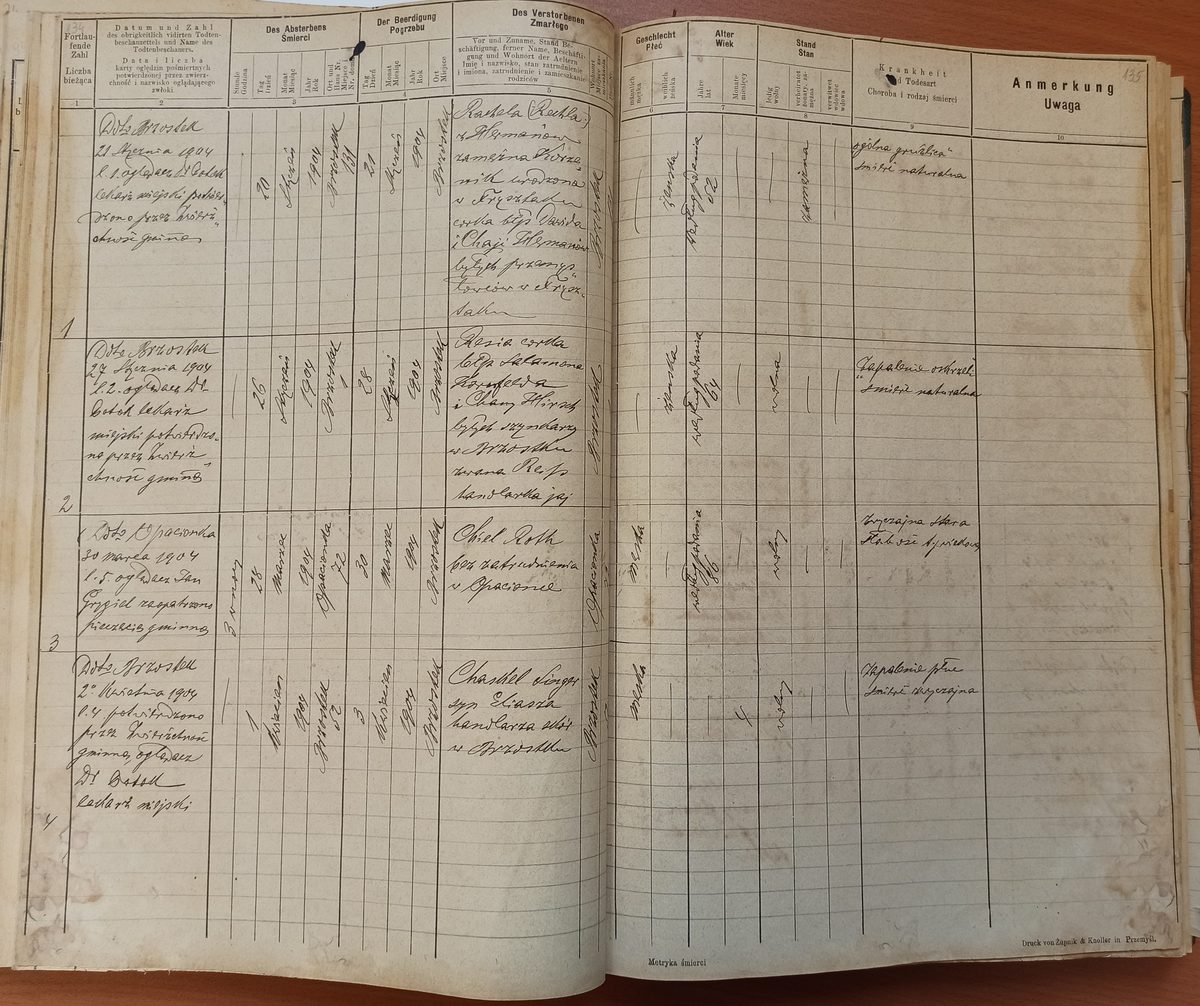 134
Fortlau-
fende
Zahl
Liczba
bieżąca
Datum und Zahl
des obrigkeitlich vidirten Todten-
beschauzettels und Name des
Todtenbeschauers.
Data i liczba
karty oględzin pośmiertnych
potwierdzonej przez zwierz-
chność i nazwisko oglądającego
zwłoki
Des Absterbens
Śmierci
Stunde
Godzina
Tag
Dzień
Monat
Miesiąc
Jahr
Rok
Der Beerdigung
Pogrzebu
Tag
Dzień
Monat
Miesiąc
Jahr
Rok
Ort
Miejsce
Des Verstorbenen
Zmarłego
Vor und Zuname, Stand Be-
schäftigung, ferner Name, Beschäfti-
gung und Wohnort der Aeltern
Imię i nazwisko, stan zatrudnienie
i imiona, zatrudnienie i zamieszkanie
rodziców
Geschlecht
Płeć
männlich
męzka
weiblich
żeńska
Alter
Wiek
Jahre
lat
Monate
miesięcy
Stand
Stan
ledig
wolny
Krankheit
und Todesart
Choroba i rodzaj śmierci
Anmerkung
Uwaga
135
1 2 3 4 5 6 7 8 9 10
1
Dtto Brzostek
21 Stycznia 1904
l. 1. oglądacz Dr Botok
lekarz miejski potwier-
dzono przez Zwierz-
chność gminną
20
Styczeń
1904
Brzostek
131
21
Styczeń
1904
Brzostek
Rachela (Rechla)
z Hermanów
zamężna Korze
nik urodzona
w Frysztaku
córka błp Dawida
i Chaji Hermanów
byłych przemys
łowców w Frysz-
taku
Brzostek
żeńska
według podania
52
zamężna
ogólna gruźlica
śmierć naturalna
2
Dtto Brzostek
27 Stycznia 1904
l. 2. oglądacz Dr
Botok lekarz
miejski potwierdzo-
no przez Zwierz
chność gminną
26
Styczeń
1904
Brzostek
1
28
Styczeń
1904
Brzostek
Resia córka
błp Salamona
Kornfelda
i Chany Hirsch
byłych szynkarzy
w Brzostku
zwana Reß
handlarka jaj
Brzostek
żeńska
według podania
64
wolna
Zapalenie oskrzeli
śmierć naturalna
3
Dtto Opacionka
30 marca 1904
l. 5. oglądacz Jan
Grygiel zaopatrzono
pieczęcią gminną
3 w nocy
28
marzec
1904
72
30
marzec
1904
Brzostek
Chiel Roth
bez zatrudnienia
w Opacionce
męska
według podania
86
wolny
Zwyczajna stara
słabość
4
Dtto Brzostek
2o Kwietnia 1904
l. 4 potwierdzono
przez Zwierzchność
gminną, oglądacz
Dr Botok
lekarz miejski
1
Kwiecień
1904
Brzostek
52
3
Kwiecień
1904
Brzostek
Chaskel Singer
syn Eliasza
handlarza skór
w Brzostku
Brzostek
męska
4
wolny
Zapalenie płuc
śmierć zwyczajna
Metryka śmierci
Druck von Żupnik & Knoller in Przemyśl.